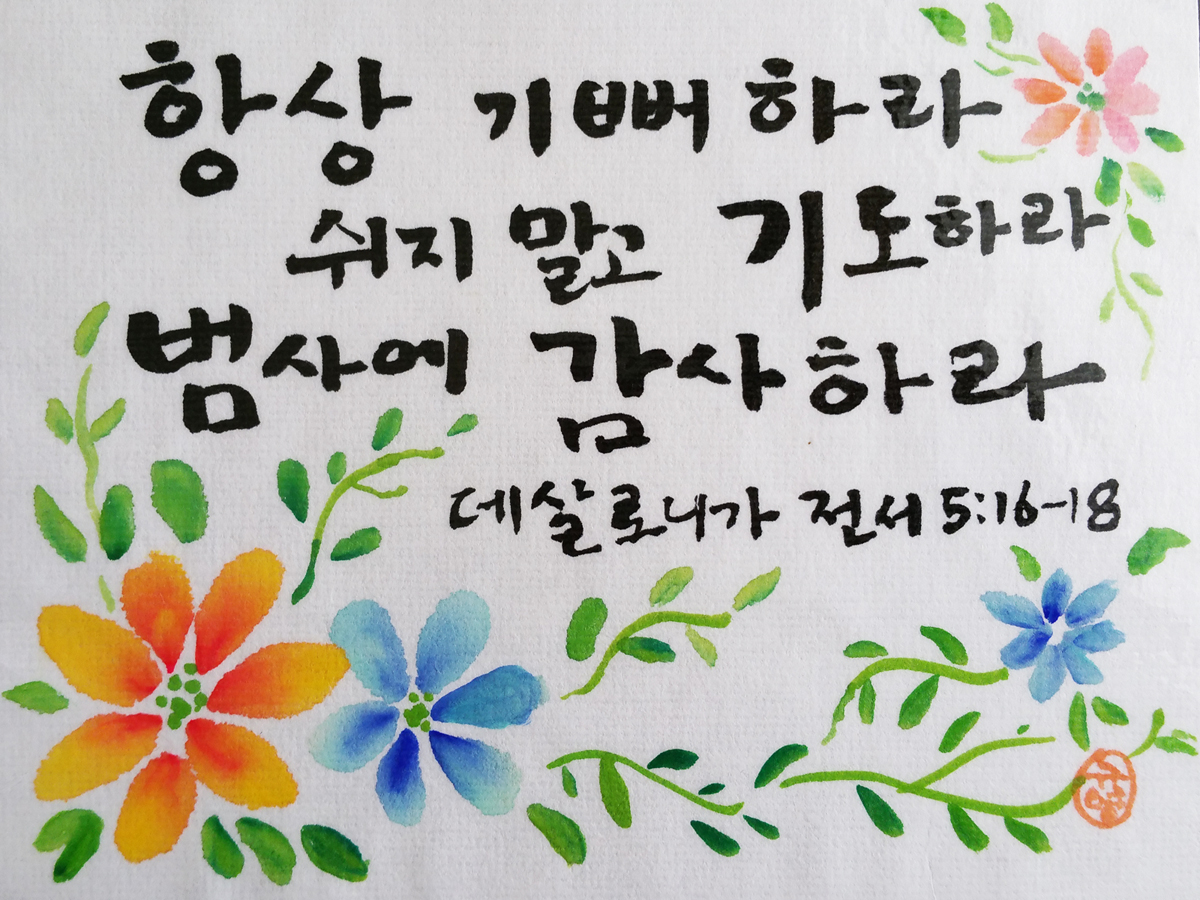 항상 기뻐하라
쉬지 말고 기도하라
범사에 감사하라
데살로니가 전서 5:16-18